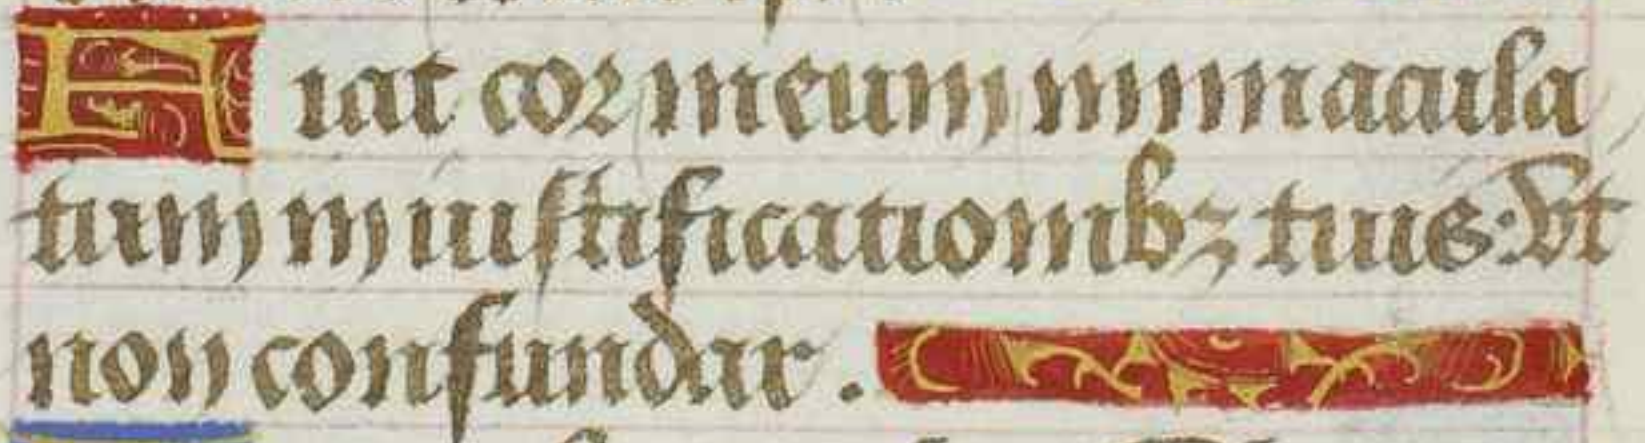 Fiat cor meum immacula
tum in iustificationibꝫ tuis: Vt
non confundar.